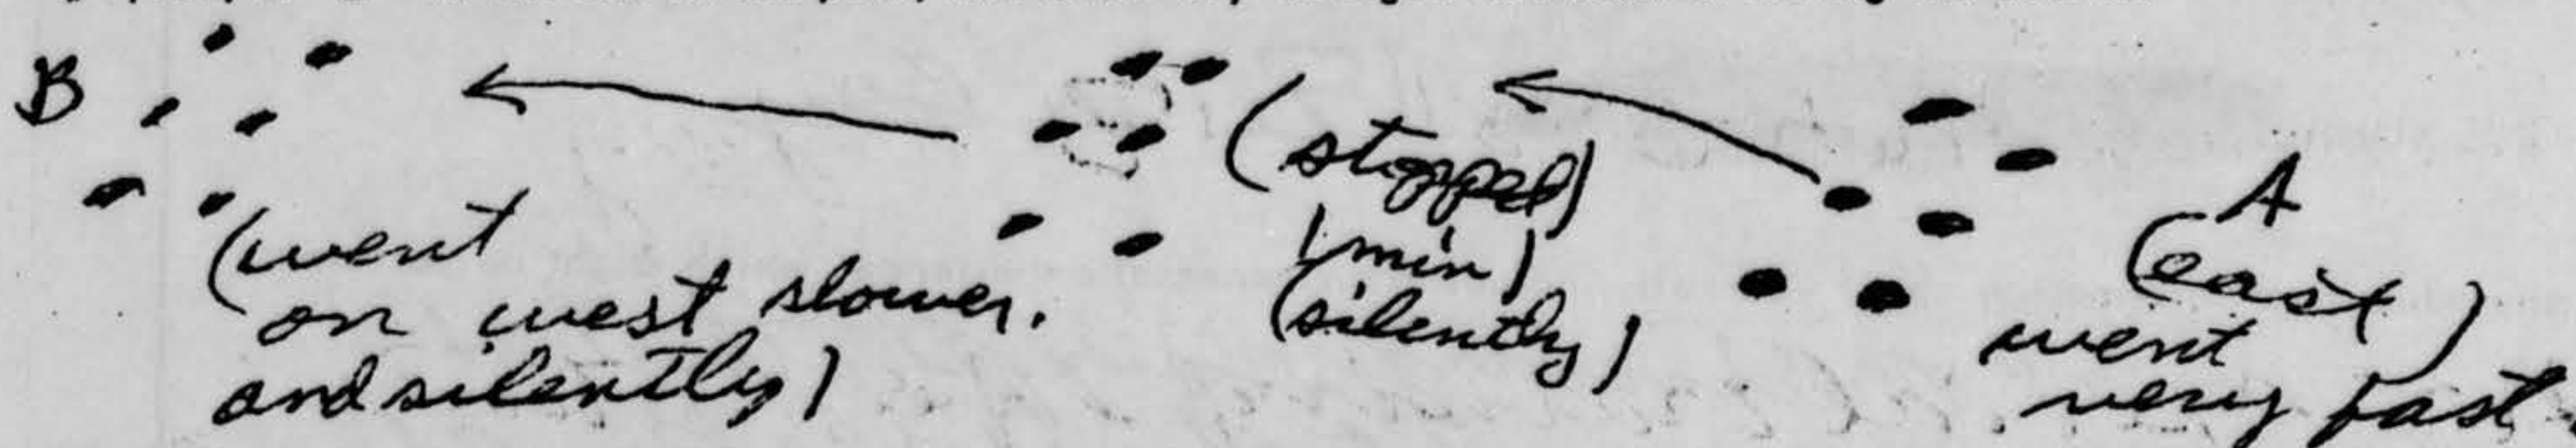 B
(went
on west slower.
and silently)
(stopped)
1 min)
(silently)
A
(east)
went
very fast.